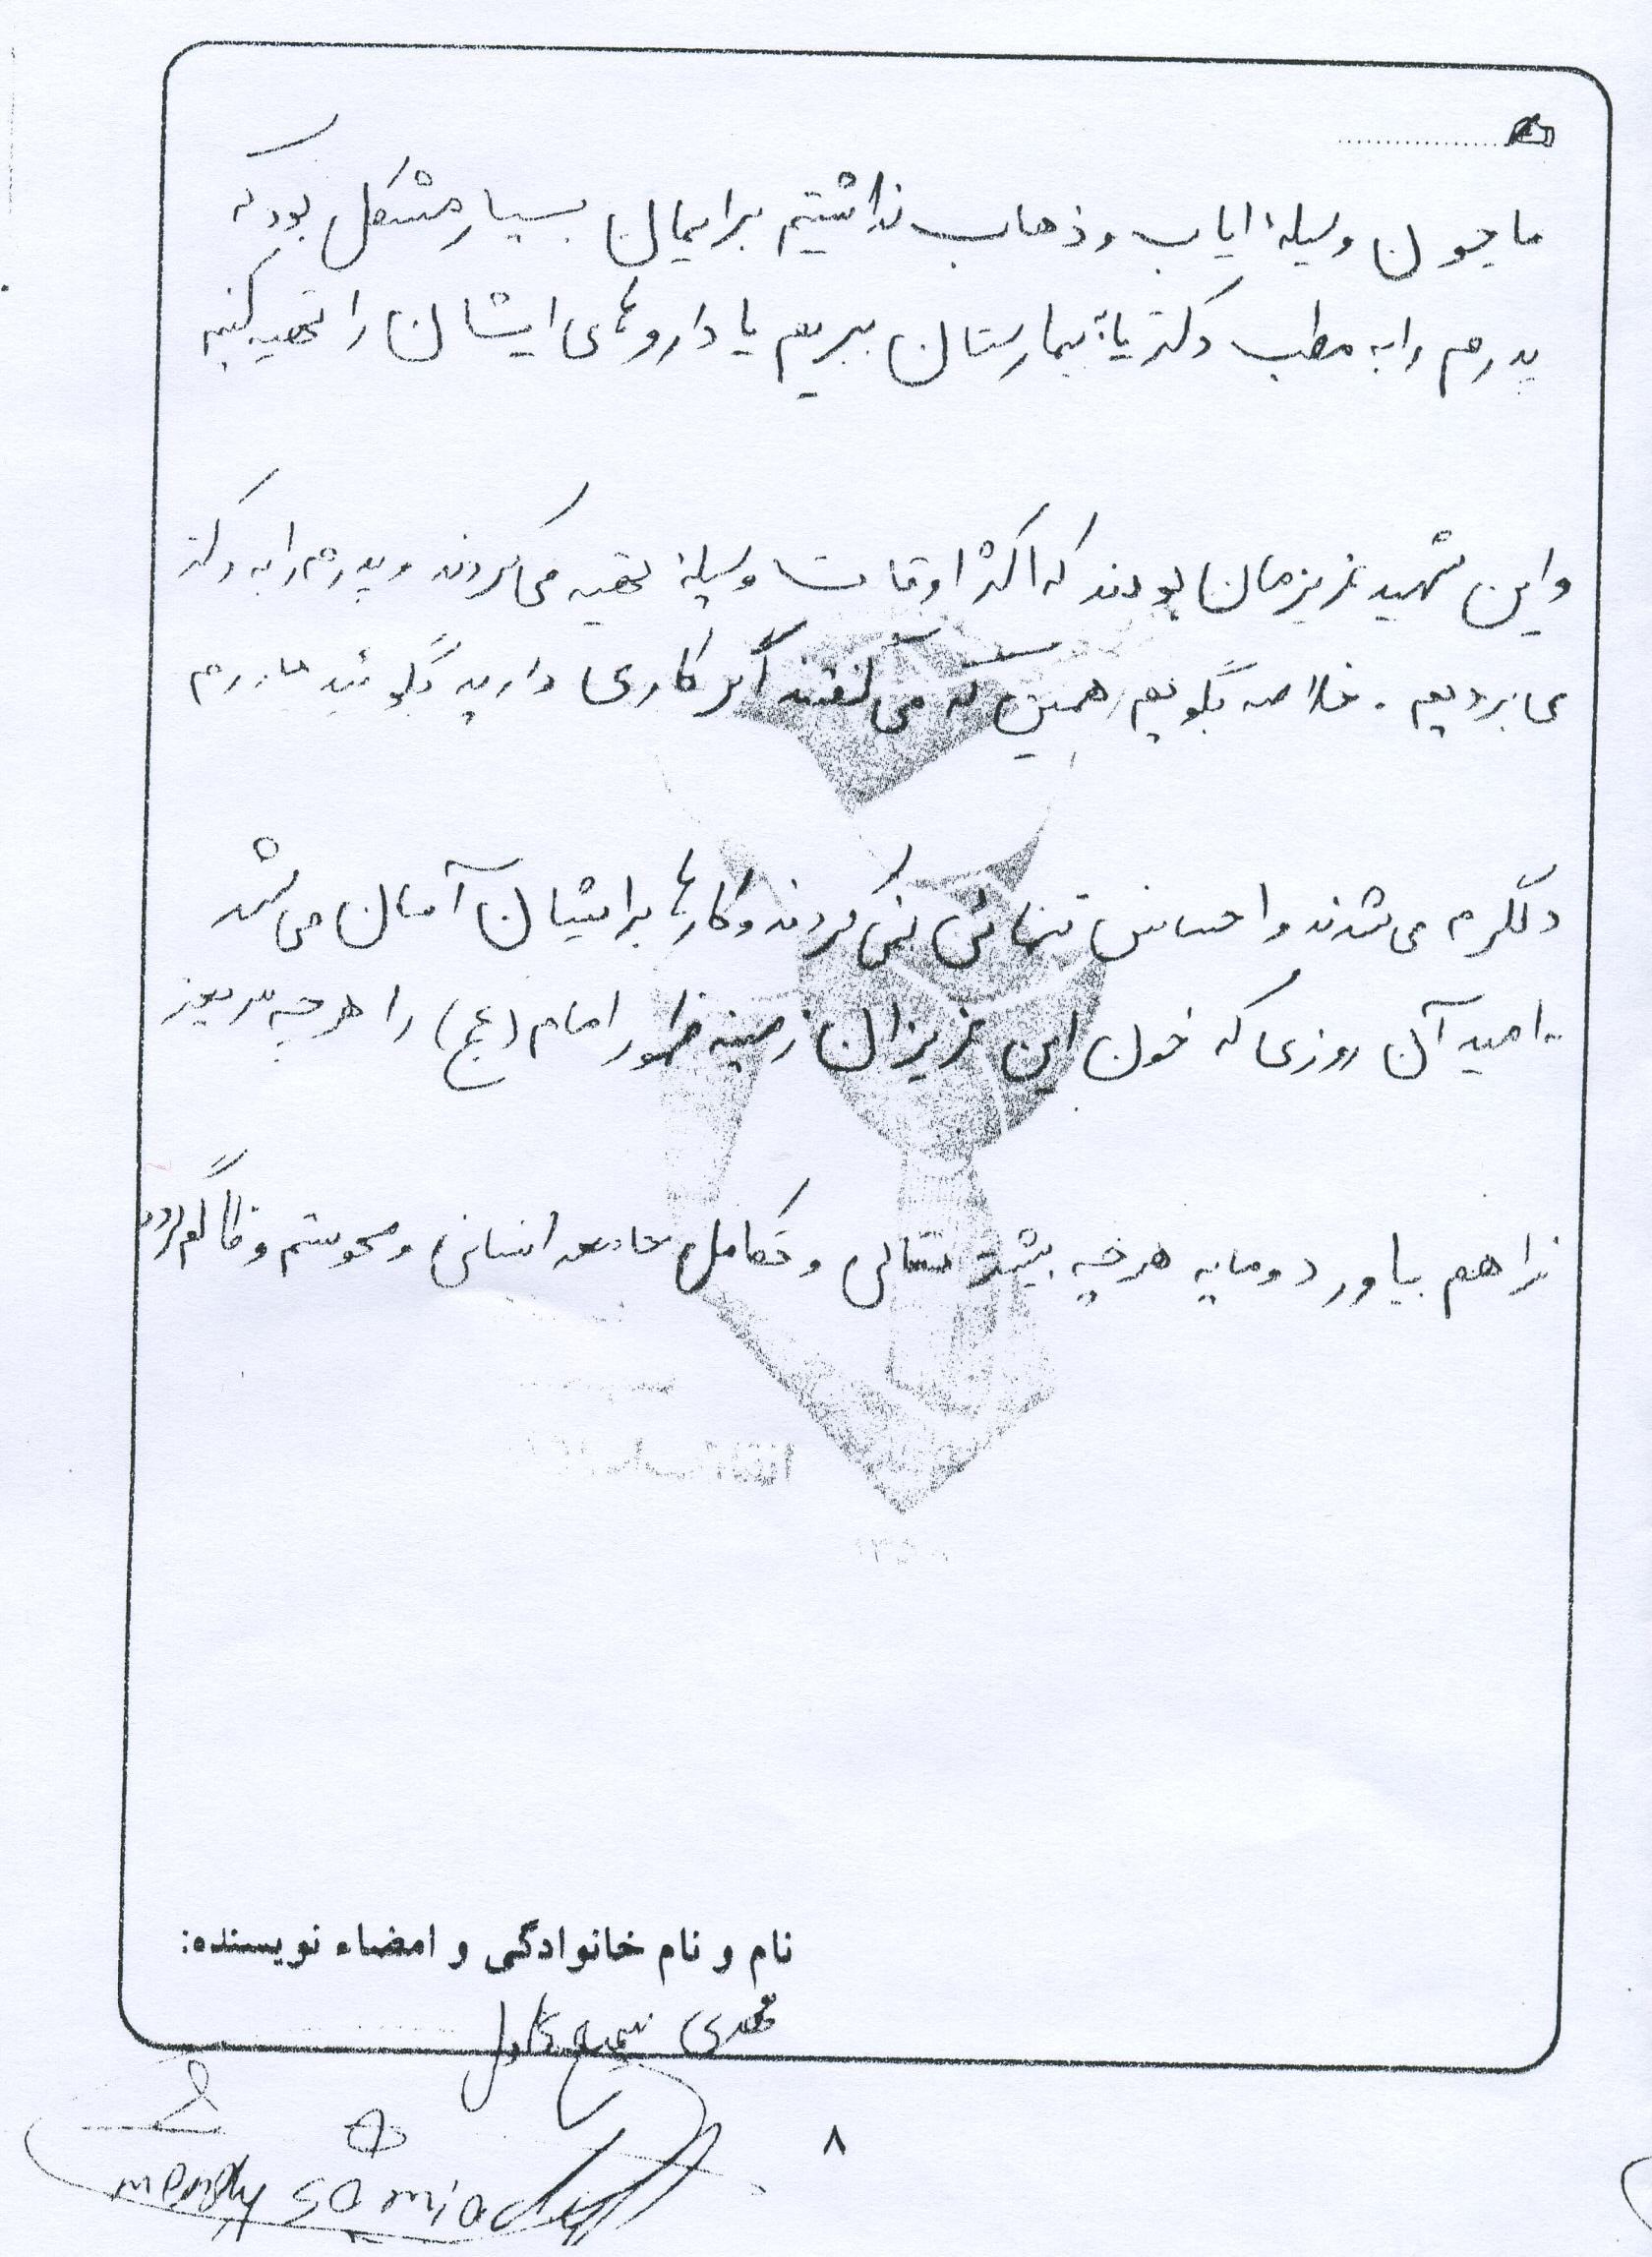 ما چون وسیلهٔ ایاب و ذهاب نداشتیم برایمان بسیار مشکل بود که
پدرم را به مطب دکتر یا بیمارستان ببریم یا داروهای ایشان را تهیه کنیم
و این شهید عزیزمان بودند که اکثر اوقات وسیله تهیه می‌کردند و پدرم را به دکتر
می بردیم . خلاصه بگویم همین که می گفتند اگر کاری دارید بگوئید مادرم
دلگرم می‌شدند و احساس تنهائی نمی‌کردند و کارها برایشان آسان می‌شد
به امید آن روزی که خون این عزیزان زمینه ظهور امام (عج) را هر چه سریعتر
فراهم بیاورد و مایه هر چه بیشتر تعالی و تکامل جامعه انسانی و محو ستم و
نام و نام خانوادگی و امضاء نویسنده:
مهدی سمیع عادل
۸